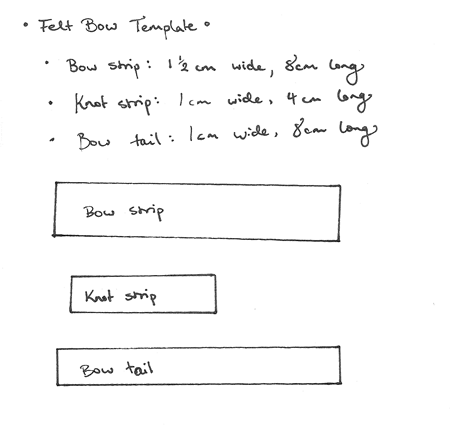 • Felt Bow Template •
• Bow strip: 1 ½ cm wide, 8cm long
• Knot strip: 1cm wide, 4cm long
• Bow tail: 1cm wide, 8cm long
Bow strip
Knot strip
Bow tail